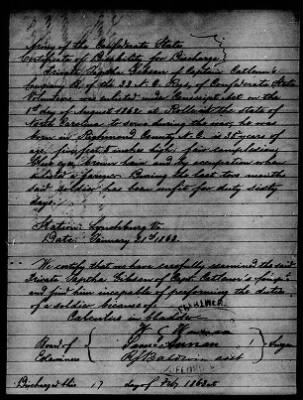 Army of the Confederate States
Certificate of Disability for Discharge
Private Jeptha Gibson of Captain Catlum's
Company of the 33 N. C. Reg. of Confederate State
Volunteers was enlisted under the on the
1st day of August 1862 at the state of
North Carolina to serve during the war, he was
born in Richmond County N. C. is 35 years of
age, five feet 8 inches high, fair complexion,
Blue eyes, brown hair and by occupation when
enlisted a farmer. During the last two months
said soldier has been unfit for duty sixty
days.
Station: Lynchburg Va
Date: January 31st 1863.
We certify that we have carefully examined the said
Private Jeptha Gibson of Capt. Company
and find him incapable of performing the duties
of a soldier because of
Calculus in bladder
Board of
Examiners
R J Baldwin asst
Surgs
Discharged this 17 day of Feb 1863 at